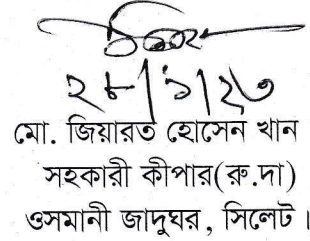 ২৮/১/২৩
মো. জিয়ারত হোসেন খান
সহকারী কীপার(রু.দা)
ওসমানী জাদুঘর, সিলেট।